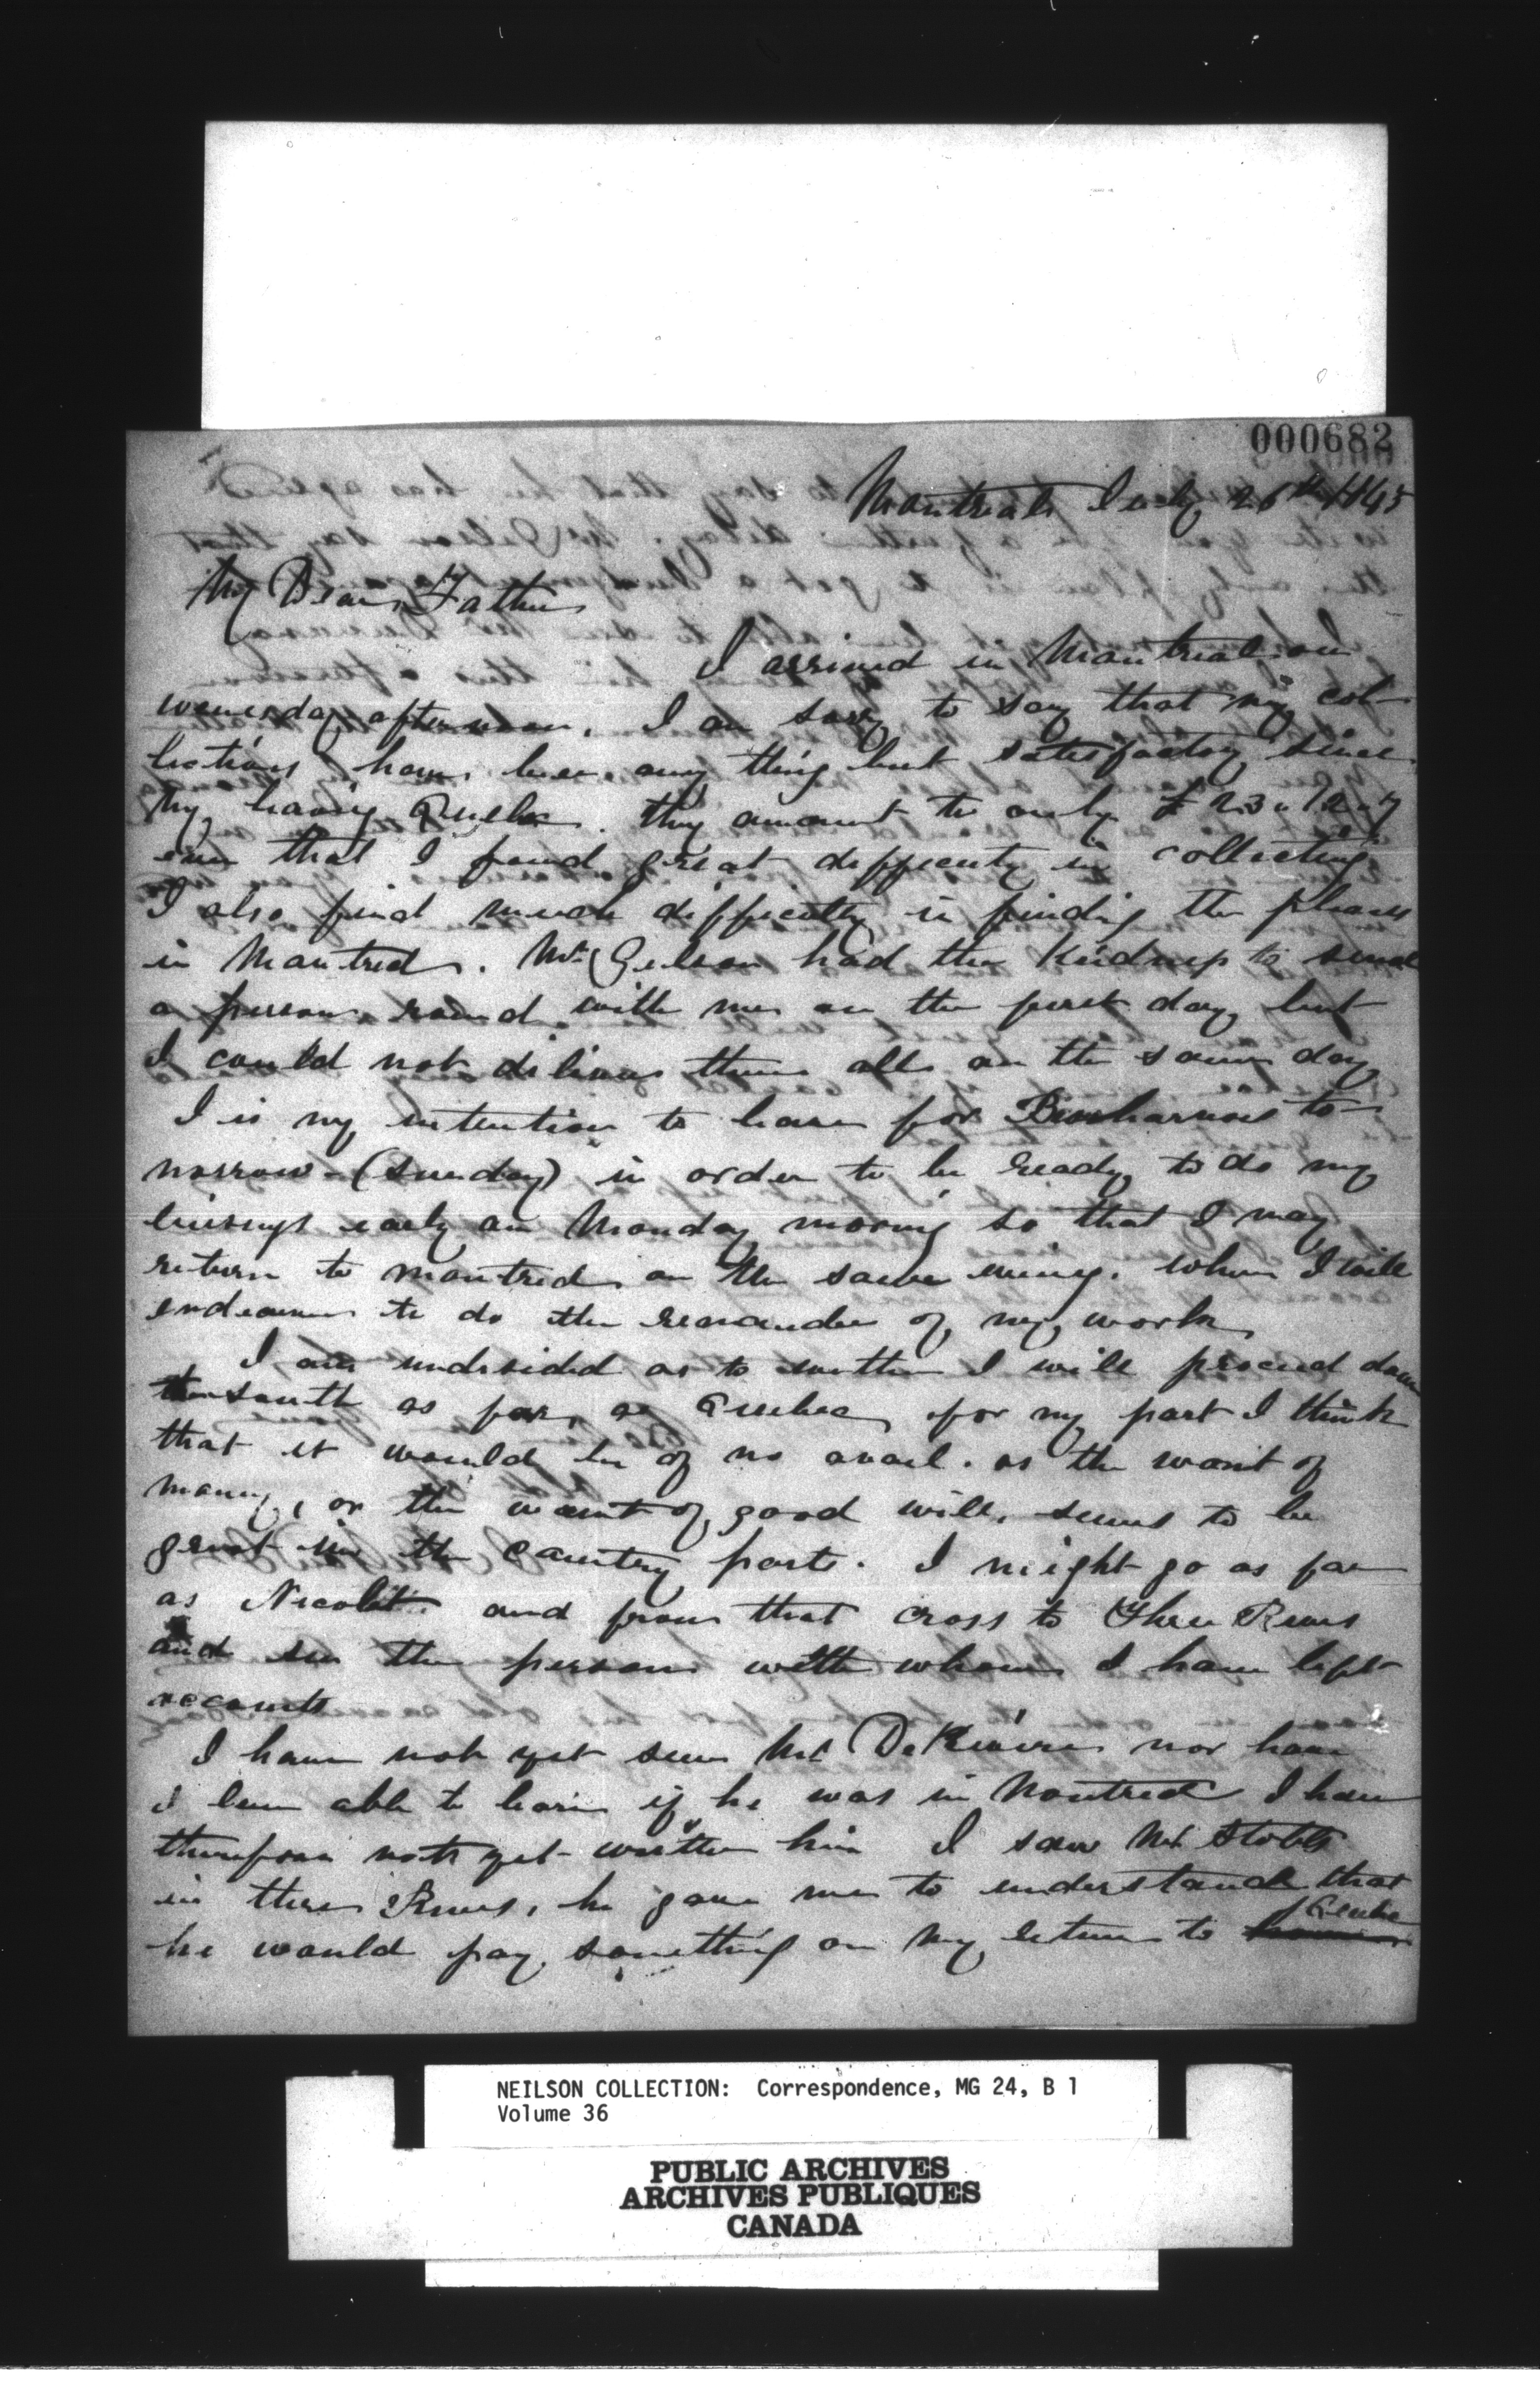 000682
Montreal July 26th 1845
My Dear Father
I arrived in Montreal on
wenesday afternoon, I am sorry to say that my col-
lections have been any thing but satisfactory since
my leaving Quebec. they amount to only £ 23 " 12 " 7
even that I found great difficulty in collecting
I also find much difficulty in finding the places
in Montreal. Mr Gilson had the kindness to send
a person round with me on the first day but
I could not deliver them all on the same day
I is my intention to leave for Beauharnois to-
morrow (Sunday) in order to be ready to do my
business early on Monday morning so that I may
return to Montreal on the same evening. when I will
endeavour to do the remainder of my work
I am undecided as to whether I will proceed down
the south as far as Quebec, for my part I think
that it would be of no avail. as the want of
money, or the want of good will, seems to be
great in the country parts. I might go as far
as Nicolet and from that cross to Three Rivers
and see the persons with whom I have left
accounts
I have not yet seen Mr nor have
I been able to learn if he was in Montreal I have
therefore not yet written him I saw Mr Stobbs
in three Rivers, he gave me to understand that
he would pay something on my return to Quebec
NEILSON COLLECTION: Correspondence, MG 24, B 1
Volume 36
PUBLIC ARCHIVES
ARCHIVES PUBLIQUES
CANADA